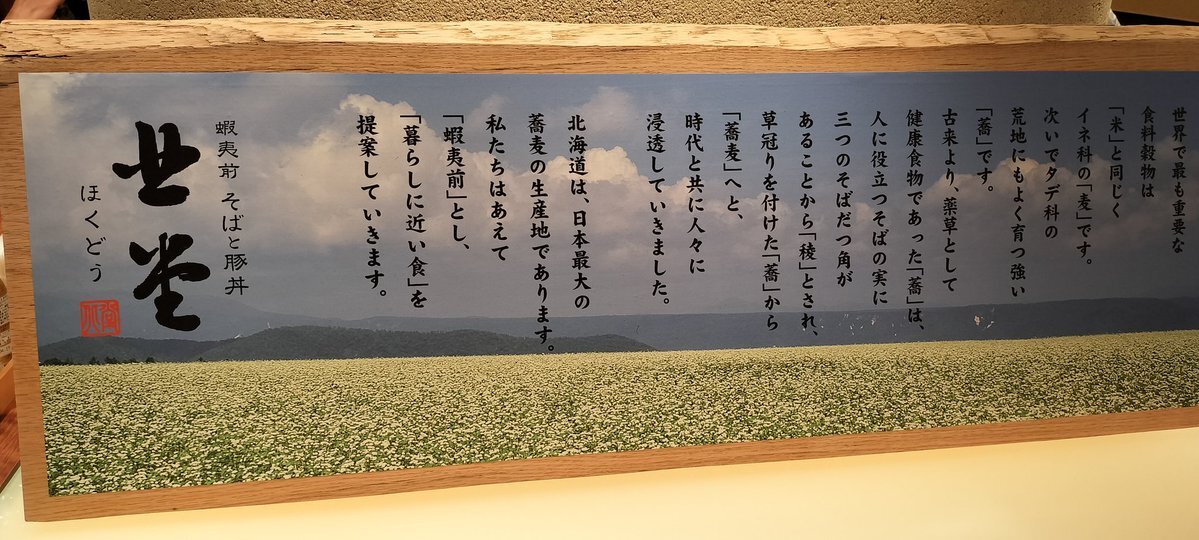 世界で最も重要な
食料穀物は
「米」と同じく
イネ科の「麦」です。
次いでタデ科の
荒地にもよく育つ強い
「蕎」です。
古来より、薬草として
健康食物であった「蕎」は、
人に役立つそばの実に
三つのそばだつ角が
あることから「稜」とされ、
草冠りを付けた「蕎」から
「蕎麦」へと、
時代と共に人々に
浸透していきました。
北海道は、日本最大の
蕎麦の生産地であります。
私たちはあえて
「蝦夷前」とし、
「暮らしに近い食」を
提案していきます。
蝦夷前 そばと豚丼
北堂
ほくどう